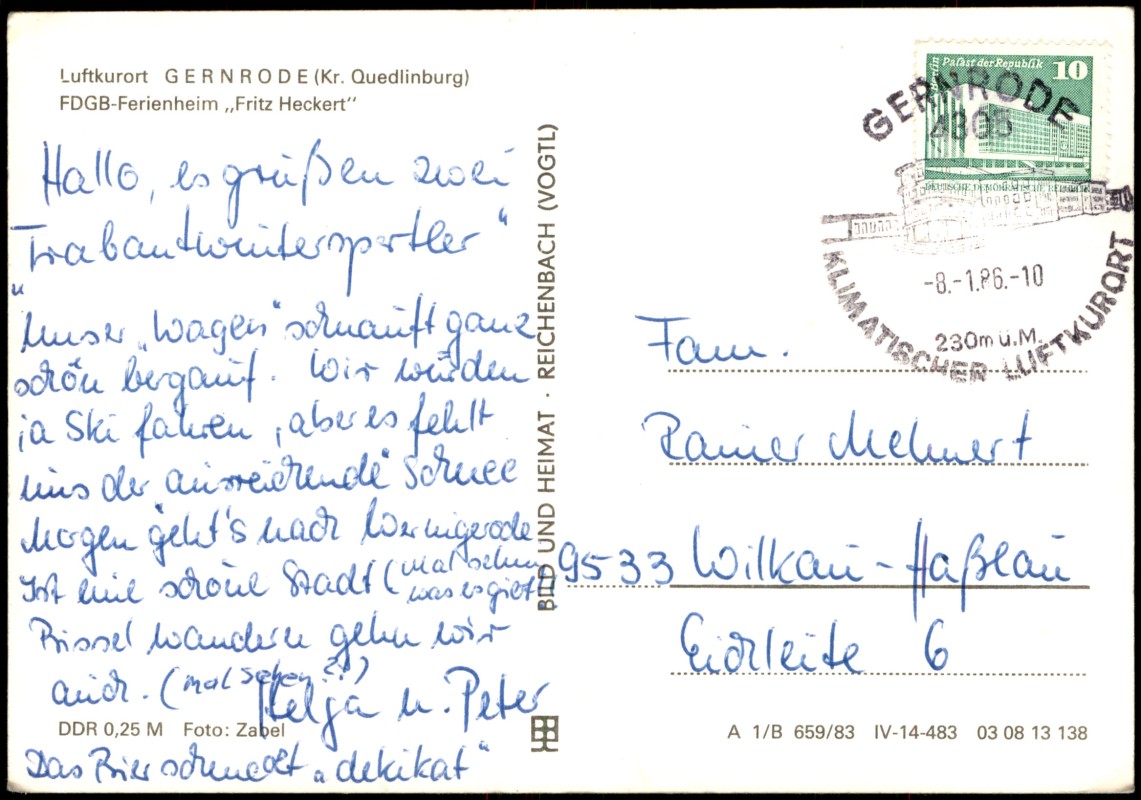 Luftkurort GERNRODE (Kr. Quedlinburg)
FDGB-Ferienheim „Fritz Heckert"
Hallo, es grüßen zwei
„Trabantwintersportler"
Unser „Wagen" schnauft ganz
schön bergauf. Wir würden
ja Ski fahren, aber es fehlt
uns der „ausreichende" Schnee
Morgen geht's nach Wernigerode
Ist eine schöne Stadt (mal sehn
was es gibt)
Bissel wandern gehn wir
auch. (mal sehen?!)
Helga u. Peter
DDR 0,25 M Foto: Zabel
Das Bier schmeckt „delikat"
BILD UND HEIMAT · REICHENBACH (VOGTL)
Berlin Palast der Republik 10
DEUTSCHE DEMOKRATISCHE REPUBLIK
GERNRODE
4305
-8.-1.86.-10
230m ü.M.
KLIMATISCHER LUFTKURORT
Fam.
Rainer Mehnert
9533 Wilkau-Haßlau
Eichleite 6
A 1/B 659/83 IV-14-483 03 08 13 138